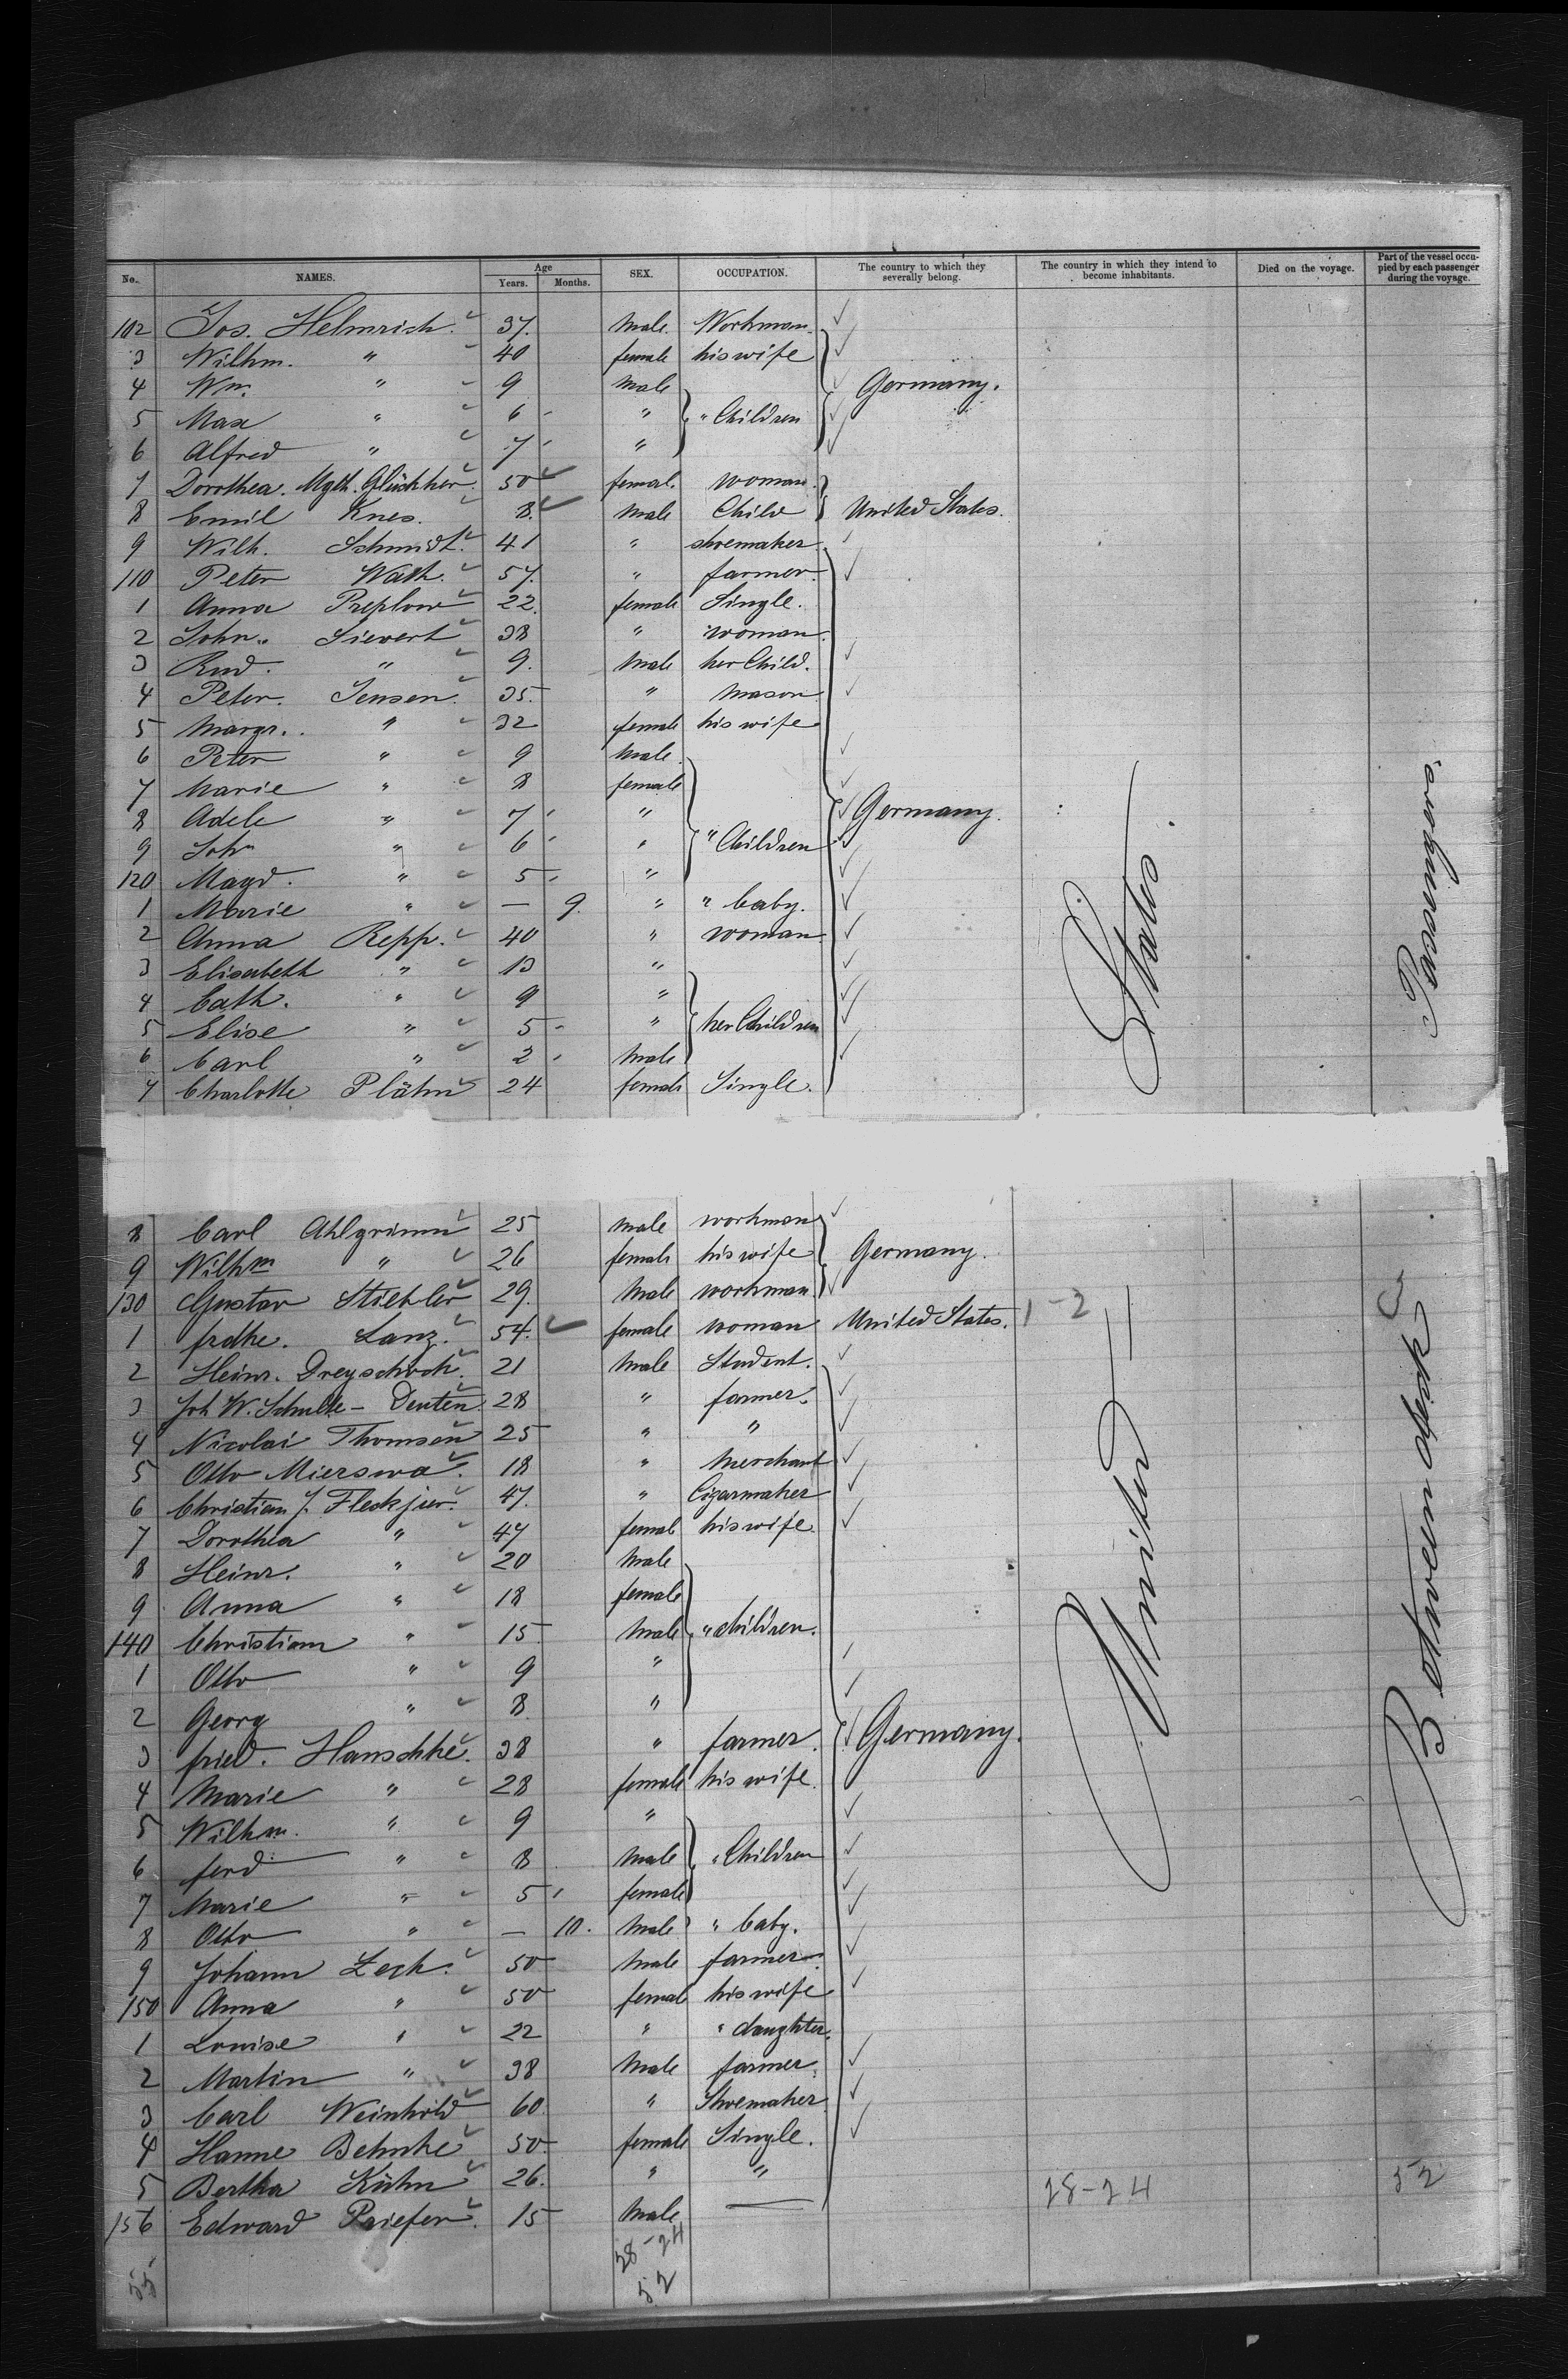 No. NAMES. Age Years. Months. SEX. OCCUPATION. The country to which they severally belong. The country in which they intend to become inhabitants. Died on the voyage. Part of the vessel occupied by each passenger during the voyage.
102 Jos. Helmrich. 37. Male. Workman.
3 Wilhm. " 40 female his wife
4 Wm. " 9 Male Germany.
5 Max " 6 " " Children
6 Alfred " 7 "
7 Dorothea. Mgth. Glückher. 50 female. woman.
8 Emil Knes. 8. Male Child United States.
9 Wilh. Schmidt. 41 " shoemaker
110 Peter Wath. 57. " farmer.
1 Anna Preplow 22. female Single.
2 John. Sievert 38 " woman.
3 Rud. " 9. Male her Child.
4 Peter. Jensen. 35. " Mason
5 Margr. " 32 female his wife
6 Peter " 9 Male.
7 Marie " 8 female
8 Adele " 7 " Germany.
9 Joh " 6 " " Children
120 Magd. " 5 "
1 Marie " — 9. " " baby.
2 Anna Repp. 40 " woman.
3 Elisabeth " 13 "
4 Cath. " 9 "
5 Elise " 5 " her Children
6 Carl " 2 Male
7 Charlotte Plähn 24 female Single.
8 Carl Ahlgrimm 25 Male workman
9 Wilhm " 26 female his wife Germany.
130 Gustav Stiehler 29. Male workman.
1 frdke. Lanz. 54. female woman United States. 1-2
2 Heinr. Dreyschock. 21 Male Student.
3 Joh W. Schulte - Deuten. 28 " farmer.
4 Nicolai Thomsen 25 " "
5 Otto Mierswa. 18 " Merchant
6 Christian J. Fleckjier. 47. " Cigarmaker
7 Dorothea " 47 female his wife.
8 Heinr. " 20 Male
9 Anna " 18 female
140 Christian " 15. Male " children.
1 Otto " 9 "
2 Georg " 8 "
3 fried. Hanschke. 38 " farmer. Germany.
4 Marie " 28 female his wife.
5 Wilhm. " 9 "
6 ferd " 8 Male " Children
7 Marie " 5 female
8 Otto " — 10. Male " baby.
9 Johann Zech. 50 Male farmer.
150 Anna " 50 female his wife
1 Louise " 22 " " daughter.
2 Martin " 38 Male farmer.
3 Carl Weinhold 60. " Shoemaker
4 Hanne Behnke 50. female Single.
5 Bertha Kühn 26. " " 28-24 52
156 Edward Priefer. 15 Male —
55 28-24
52
United States.
Between deck Passengers.